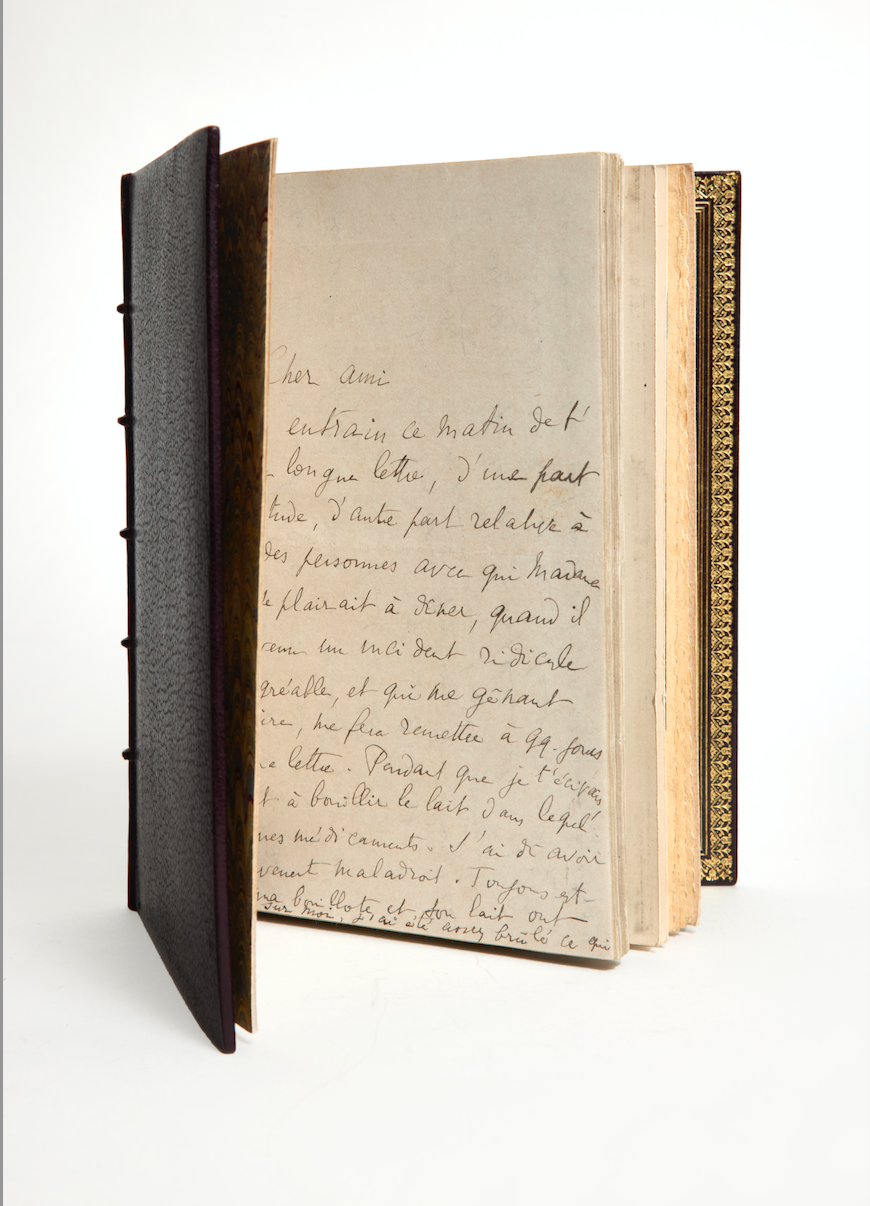 Cher ami
entrain ce matin de t'
longue lettre, d'une part
tude, d'autre part relative à
des personnes avec qui Madame
plairait à dîner, quand il
venu un incident ridicule
gréable, et qui me gênant
ire, me fera remettre à qq. jours
a lettre. Pendant que je t'écrivais
t à bouillir le lait dans lequel
mes médicaments. J'ai dû avoir
vement maladroit. Toujours est-
ma bouillote et son lait ont
sur moi, j'ai été assez brûlé ce qui